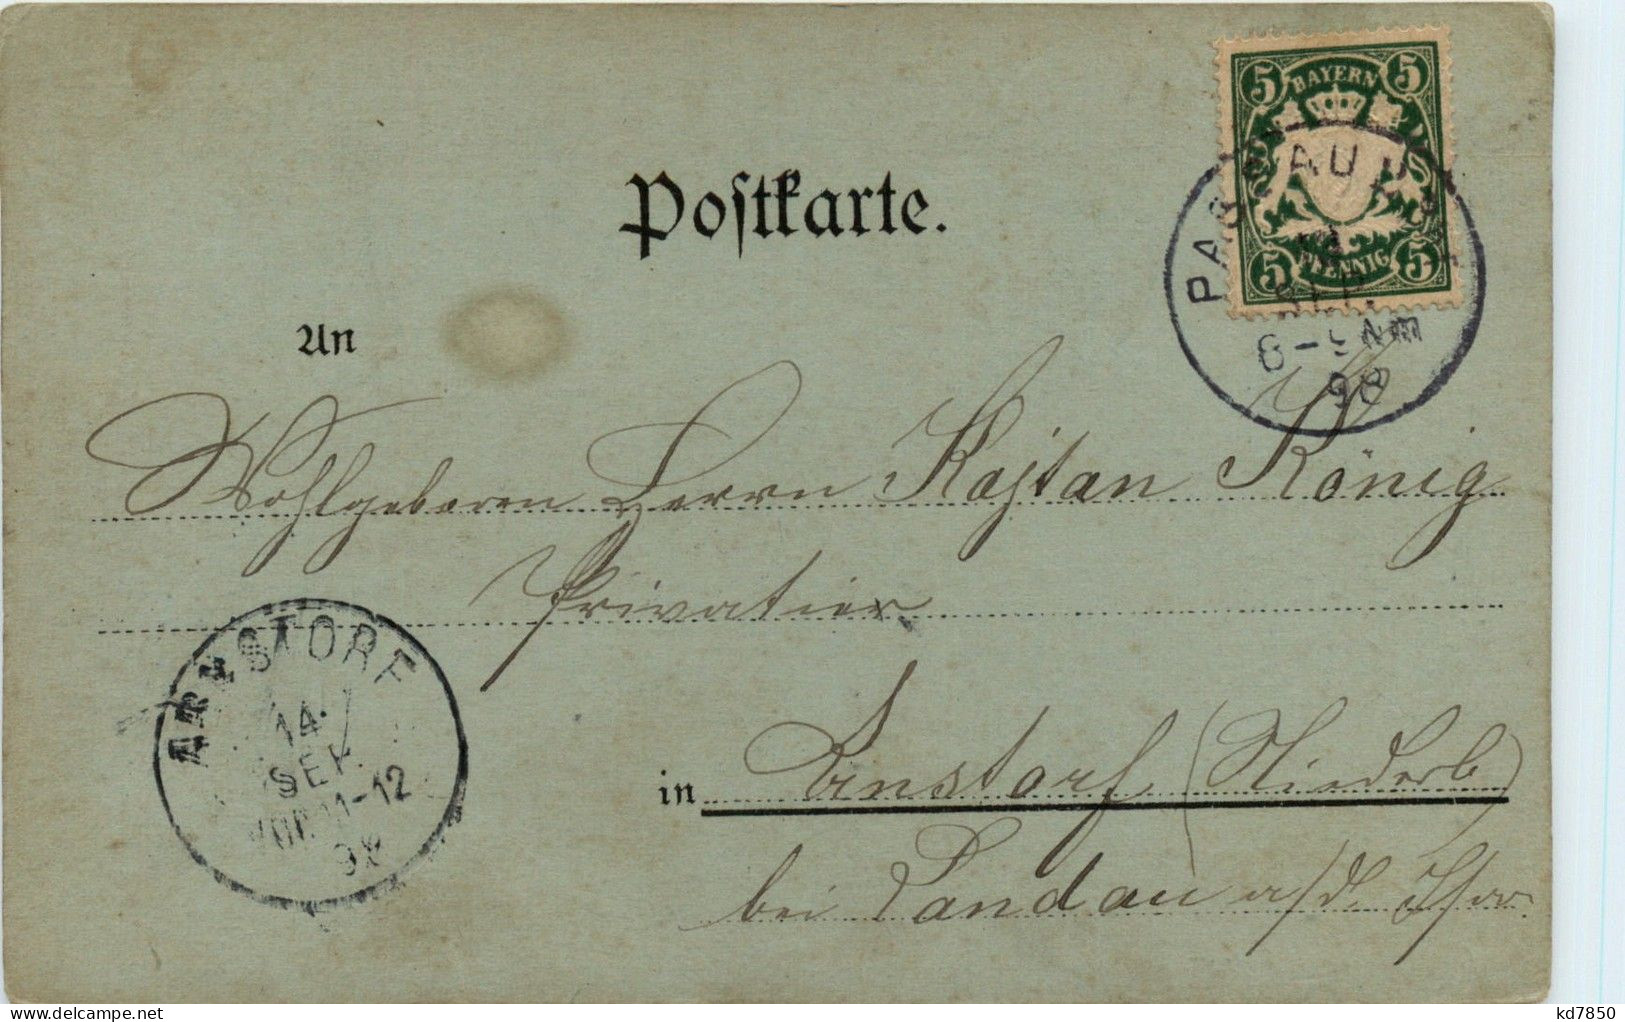 5 BAYERN 5
5 PFENNIG 5
PASSAU
SEP.
98
Postkarte.
An
Wohlgeboren Herrn Kajtan König
Privatier
ARNSTORF
14.
SEP.
VOR.11-12
98
in Arnstorf (Niederb)
bei Landau a/d. Isar.
kd7850